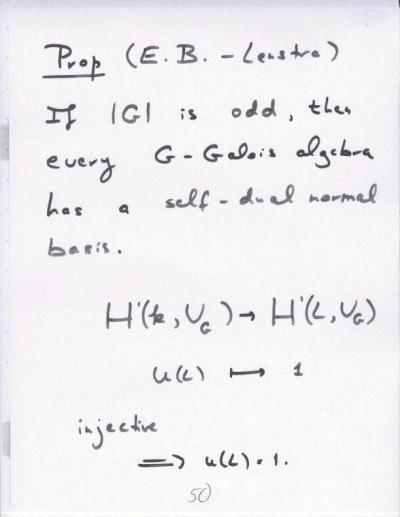 Prop (E. B. - Lenstra)
If |G| is odd, then
every G-Galois algebra
has a self-dual normal
basis.
H¹(k, U_G) → H¹(L, U_G)
u(L) ⟼ 1
injective
⟹ u(L) = 1.
50